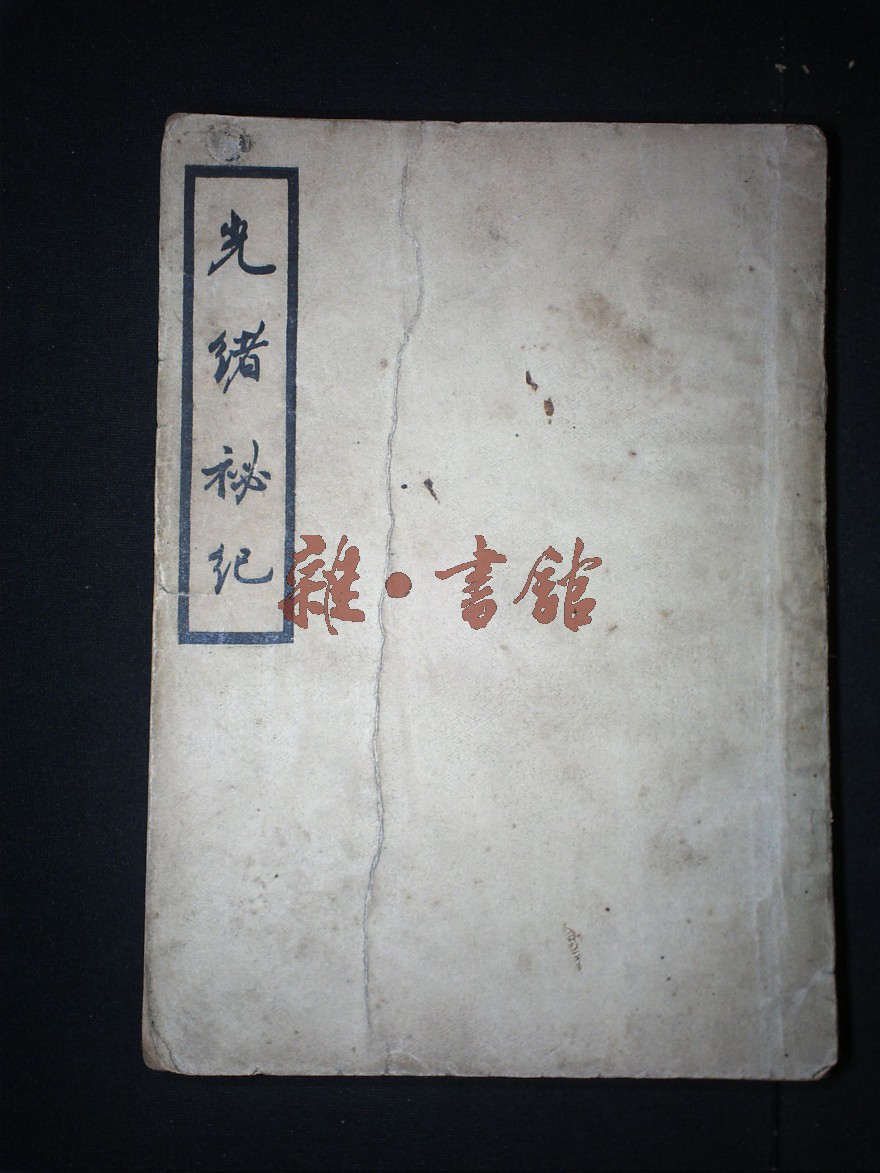 光緒祕紀
雜·書館